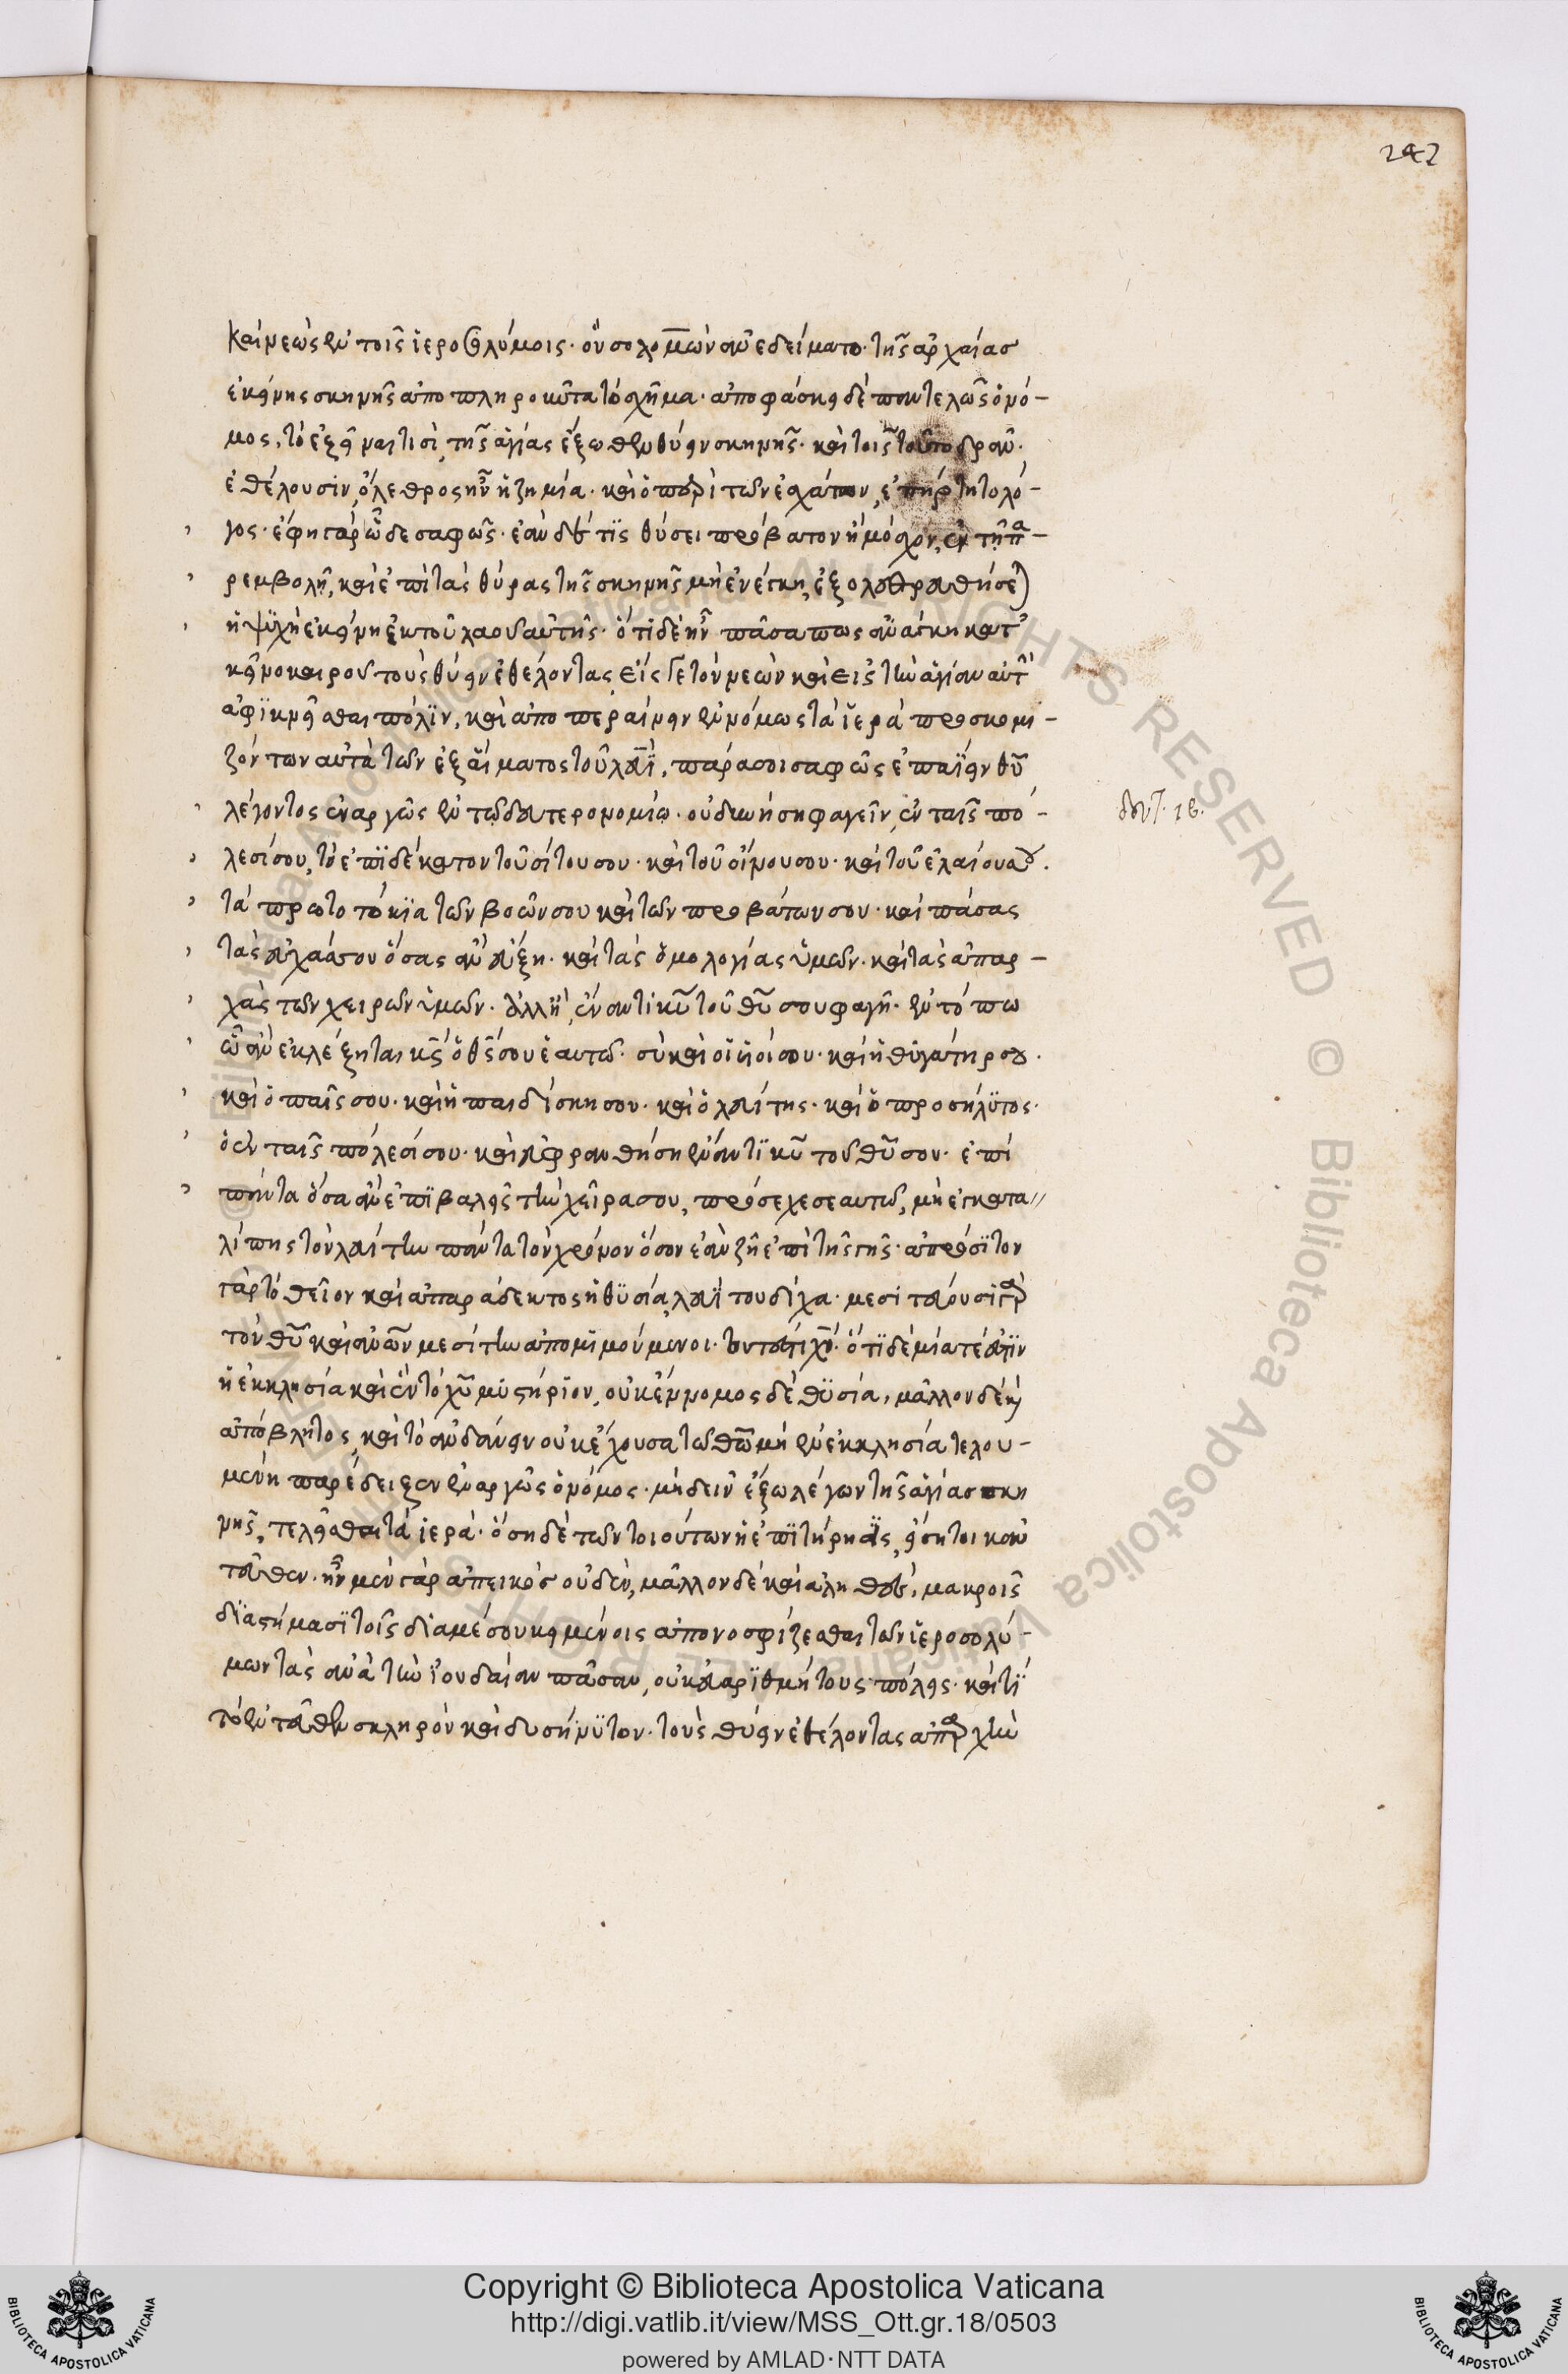 242
καὶ νεὼς ἐν τοῖς ἱεροσολύμοις· ὃν σολομῶν ἀνεδείματο· τῆς ἀρχαίας
ἐκείνης σκηνῆς ἀποπληροῦντα τὸ σχῆμα· ἀποφάσκει δὲ παντελῶς ὁ νό-
μος, τὸ ἐξεῖναι τισὶ, τῆς ἁγίας ἔξωθεν θύειν σκηνῆς· καὶ τοῖς τοῦτο δρᾶν
ἐθέλουσιν, ὄλεθρος ἦν ἡ ζημία· καὶ ὁ περὶ τῶν ἐσχάτων, ἐπήρτητο λό-
γος· ἔφη γὰρ ὧδε σαφῶς· ἐὰν δέ τις θύσει πρόβατον ἢ μόσχον, ἐν τῇ πα-
ρεμβολῇ, καὶ ἐπὶ τὰς θύρας τῆς σκηνῆς μὴ ἐνέγκη, ἐξολοθρευθήσεται
ἡ ψυχὴ ἐκείνη ἐκ τοῦ λαοῦ αὐτῆς· ὅτι δὲ ἦν πᾶσα πως ἀνάγκη κατ'
κεῖνο καιροῦ τοὺς θύειν ἐθέλοντας, εἴς γε τὸν νεὼν καὶ εἰς τὴν ἁγίαν αὐτὴν
ἀφικνεῖσθαι πόλιν, καὶ ἀποπεραίνειν ἐννόμως τὰ ἱερὰ προσκομι-
ζόντων αὐτὰ τῶν ἐξ αἵματος τοῦ λευὶ, πάρα σοι σαφῶς ἐπαΐειν θῡ
λέγοντος ἐναργῶς ἐν τῶ δευτερονομίω· οὐ δυνήση φαγεῖν, ἐν ταῖς πό-
δευτ. ιβ.
λεσί σου, τὸ ἐπιδέκατον τοῦ σίτου σου· καὶ τοῦ οἴνου σου· καὶ τοῦ ἐλαίου σου.
τὰ πρωτοτόκια τῶν βοῶν σου καὶ τῶν προβάτων σου· καὶ πάσας
τὰς εὐχάς σου ὅσας ἂν εὔξη· καὶ τὰς ὁμολογίας ὑμῶν· καὶ τὰς ἀπαρ-
χὰς τῶν χειρῶν ὑμῶν· ἀλλ' ἢ, ἐναντί κῡ τοῦ θῡ σου φαγῆ· ἐν τόπω
ὧ ἂν ἐκλέξηται κς̄ ὁ θς̄ σου ἑαυτῶ· σὺ καὶ οἱ υἱοί σου· καὶ ἡ θυγάτηρ σου·
καὶ ὁ παῖς σου· καὶ ἡ παιδίσκη σου· καὶ ὁ λευίτης· καὶ ὁ προσήλυτος·
ὁ ἐν ταῖς πόλεσί σου· καὶ εὐφρανθήση ἐναντὶ κῡ τοῦ θῡ σου· ἐπὶ
πάντα ὅσα ἂν ἐπιβαλῆς τὴν χεῖρα σου, πρόσεχε σεαυτῶ, μὴ ἐγκατα-
λίπης τὸν λευίτην πάντα τὸν χρόνον ὅσον ἐὰν ζῆ ἐπὶ τῆς γῆς· ἀπρόσιτον
γὰρ τὸ θεῖον καὶ ἀπαράδεκτος ἡ θυσία, λευὶ τοῦ δίχα· μεσιτεύουσι γὰρ
τὸν θῡ καὶ ἀνων μεσίτην ἀπομιμούμενοι· τουτέστι χν̄· ὅτι δὲ μία τέ ἐστιν
ἡ ἐκκλησία καὶ ἓν τὸ χῡ μυστήριον, οὐκ ἔννομος δὲ θυσία, μᾶλλον δὲ καὶ
ἀπόβλητος, καὶ τὸ ἁνδάνειν οὐκ ἔχουσα τῶ θῶ μὴ ἐν ἐκκλησία τελου-
μένη παρέδειξεν ἐναργῶς ὁ νόμος· μὴ δεῖν ἔξω λέγων τῆς ἁγίας σκη
νῆς, τελεῖσθαι τὰ ἱερὰ· ὅση δὲ τῶν τοιούτων ἡ ἐπιτήρησις, εἴση τοι κἀν
τεῦθεν· ἦν μὲν γὰρ ἀπεικὸς οὐδὲν, μᾶλλον δὲ καὶ ἀληθὲς, μακροῖς
διαστήμασι τοῖς διὰ μέσου κειμένοις ἀπονοσφίζεσθαι τῶν ἱεροσολύ-
μων τὰς ἀνὰ τὴν ἰουδαίαν πᾶσαν, οὐκ εὐαριθμήτους πόλεις· καὶ τί
τὸ ἐντεῦθεν σκληρὸν καὶ δυσήνυτον· τοὺς θύειν ἐθέλοντας ἀπαρχὴν
Copyright © Biblioteca Apostolica Vaticana
http://digi.vatlib.it/view/MSS_Ott.gr.18/0503
powered by AMLAD·NTT DATA